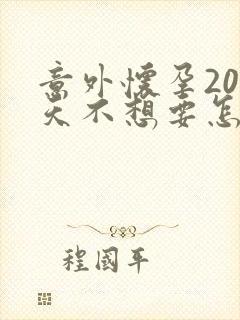 意外怀孕20
天不想要怎
程国平